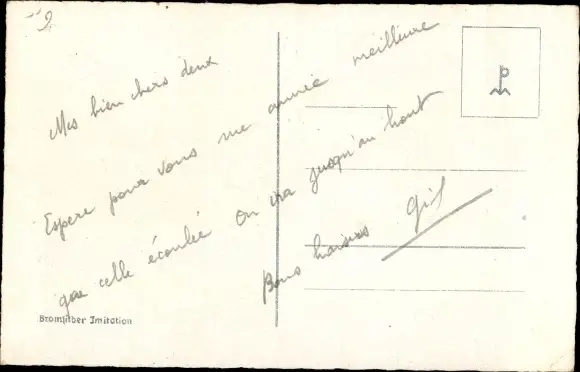 Mes bien chers deux
Espère pour vous une année meilleure
que celle écoulée On ira jusqu'au bout
Bons baisers Gil
Bromsilber Imitation